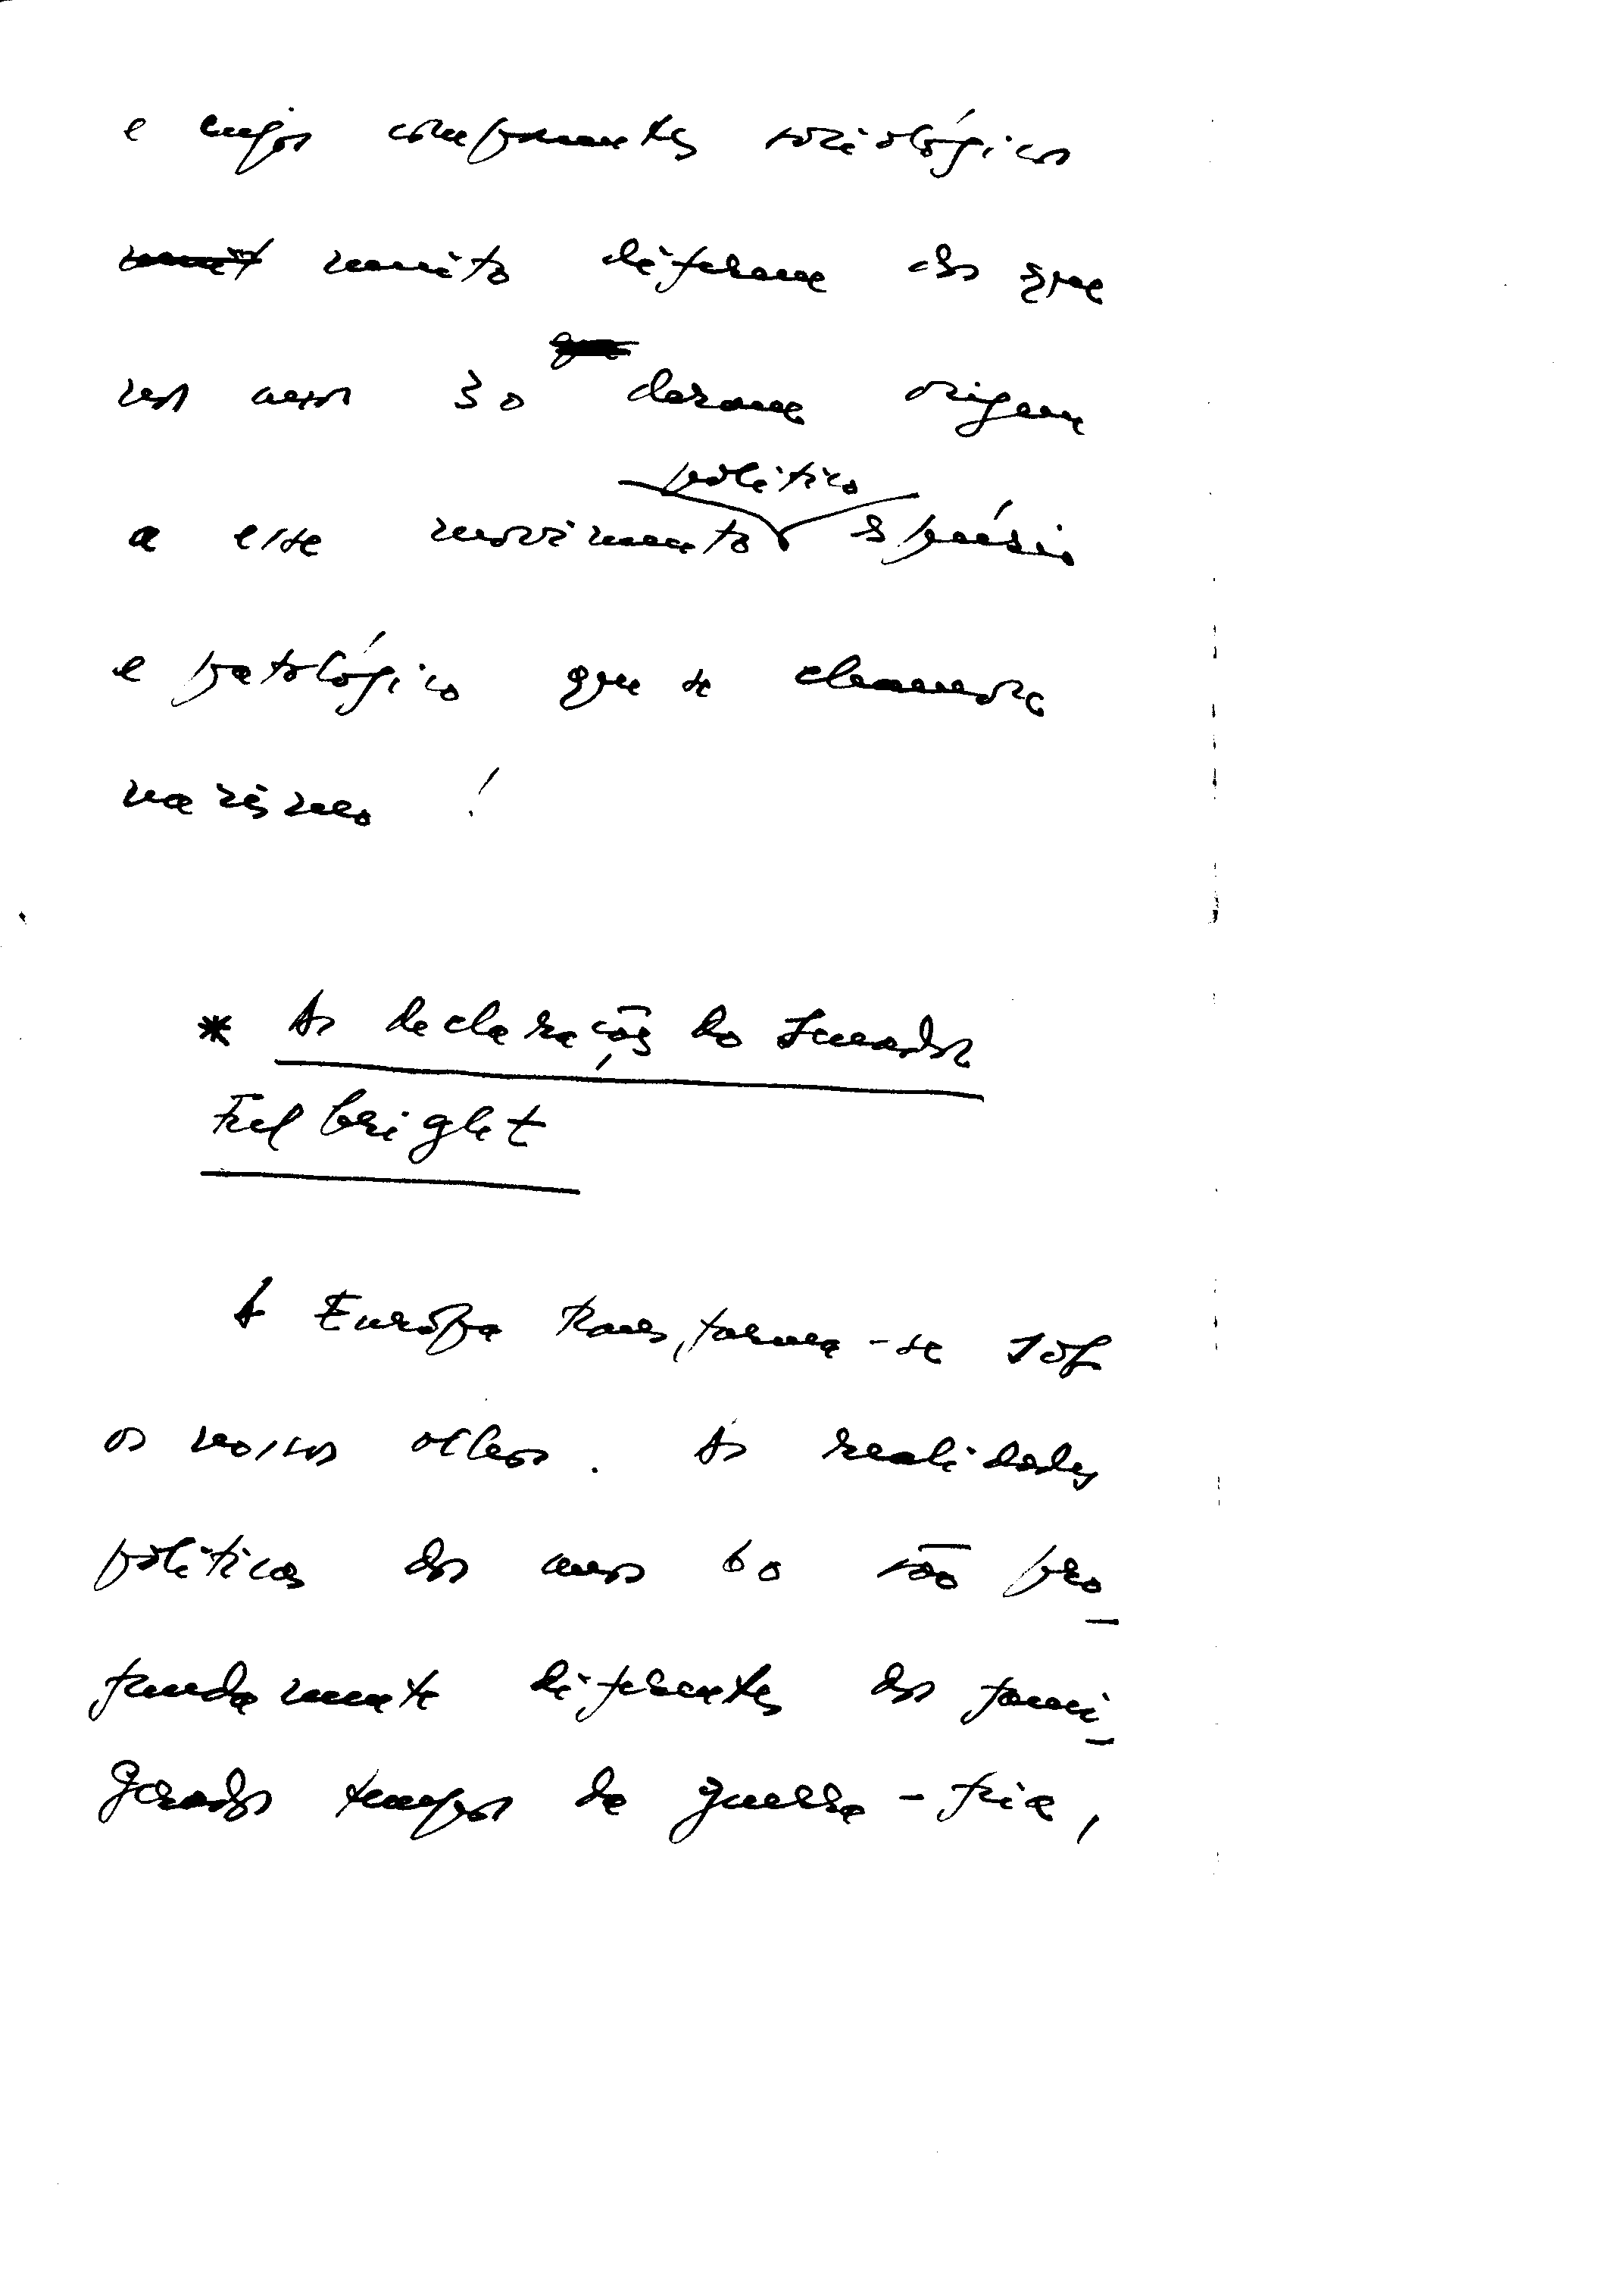 e cujos componentes sociológicos
muito diferem dos que
nos anos 30 deram origem
político
a esse movimento espúrio
e patológico que se chamou
nazismo !
* As declarações do Senador
Fulbright
A Európa transforma-se sob
os nossos olhos. As realidades
políticas dos anos 60 são pro-
fundamente diferentes dos fami-
gerados tempos da guerra-fria,